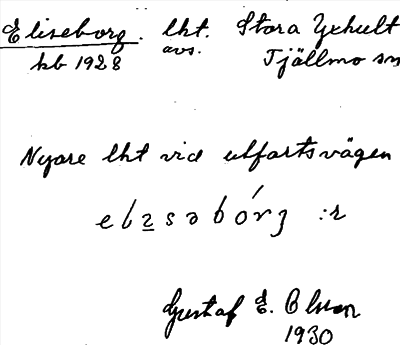 Eliseborg. lht. Stora Yxhult
kb 1928 avs. Tjällmo sn
Nyare lht vid utfartsvägen
elisəbórj :r
Gustaf E. Olsson
1930